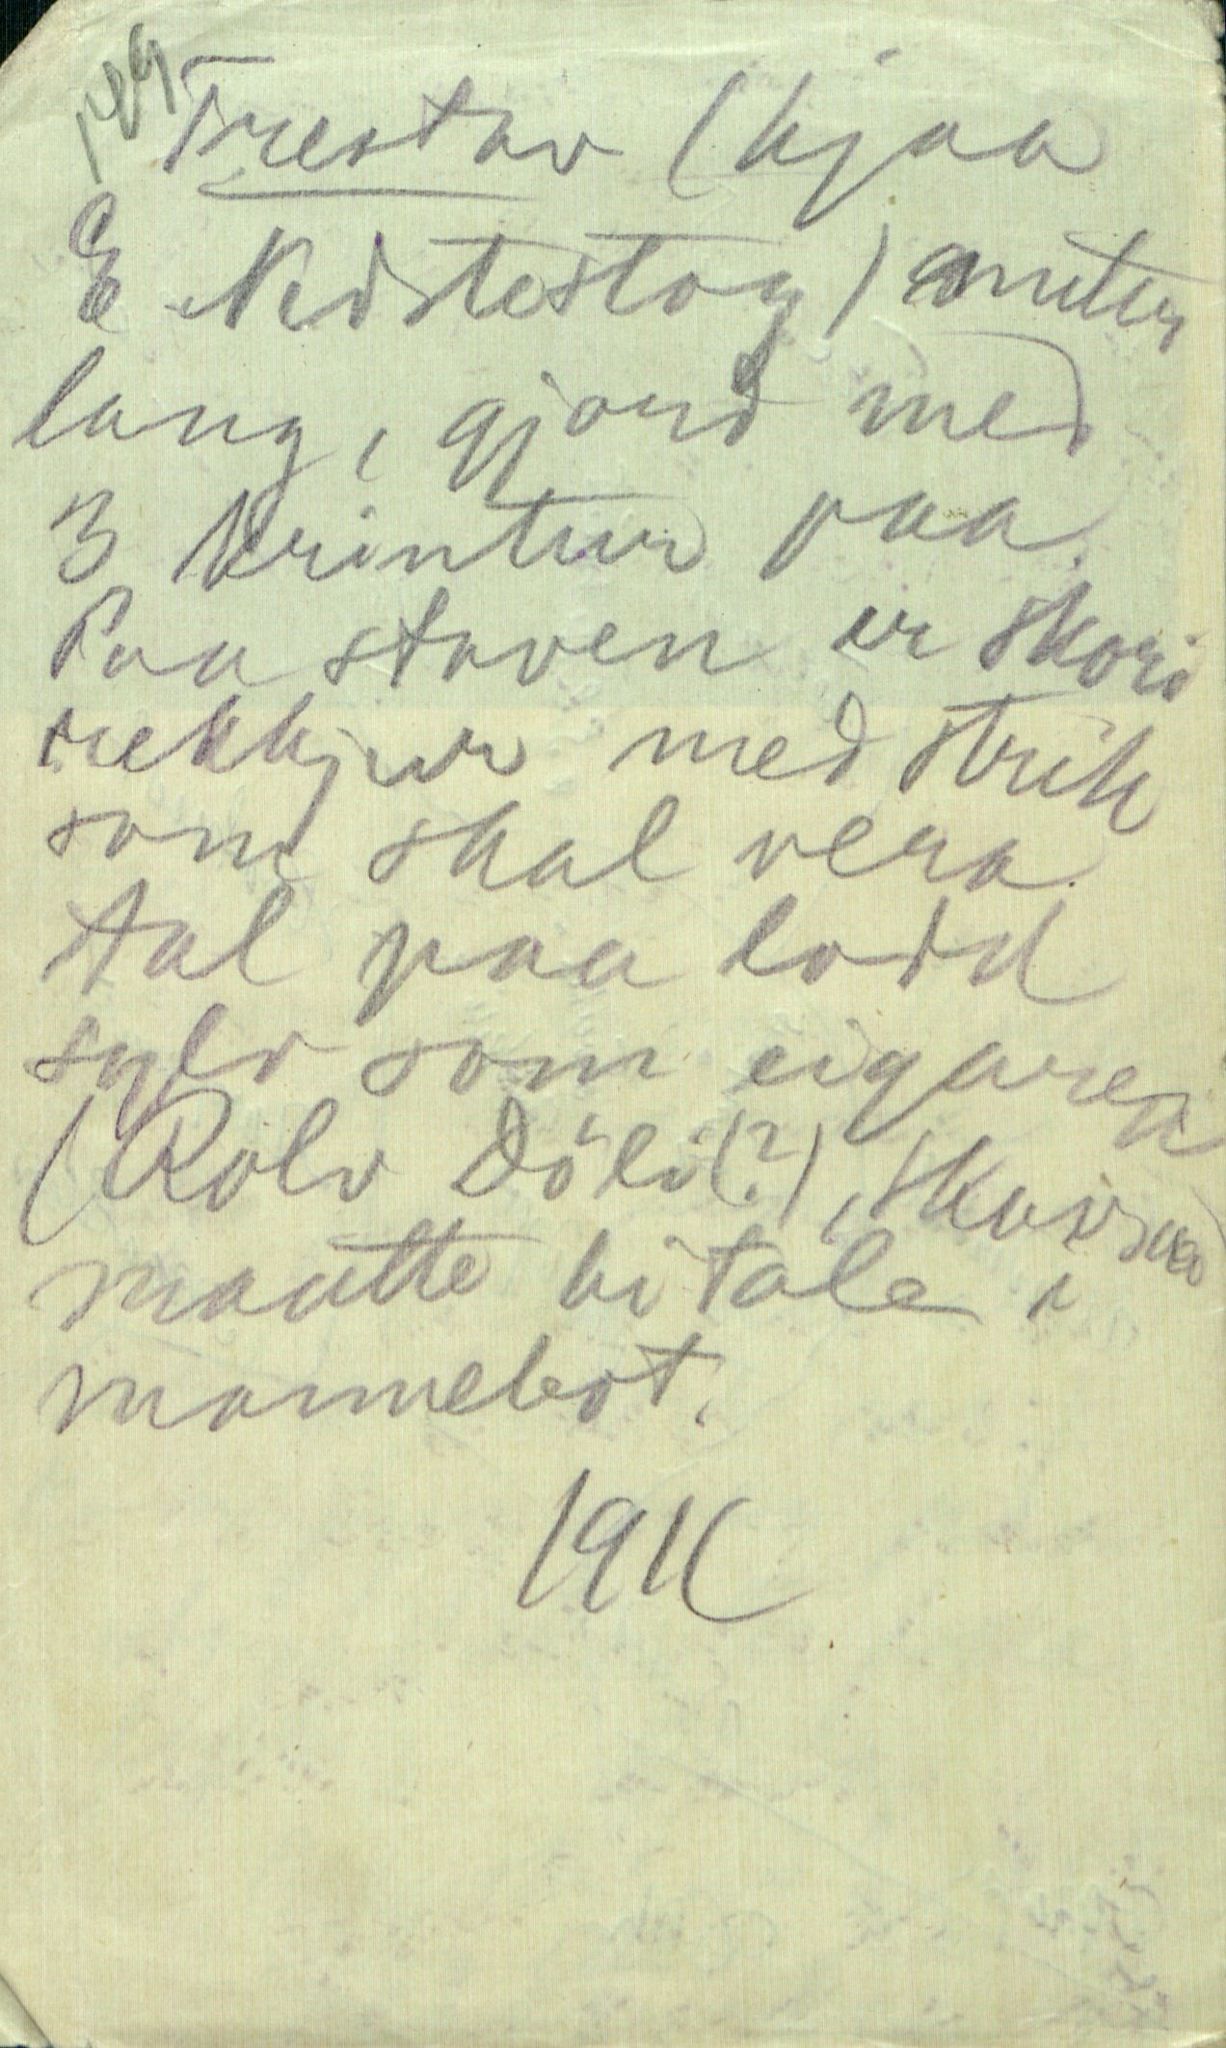 149
Trestav (hjaa
E Nistestog) meter
lang, gjord med
3 krintur paa.
Paa staven er skori
rekkjur med strik
som skal vera
tal paa lodd
sylv som eigaren
(Rolv Döli(?),
maatte bitale i
mannebot.
191